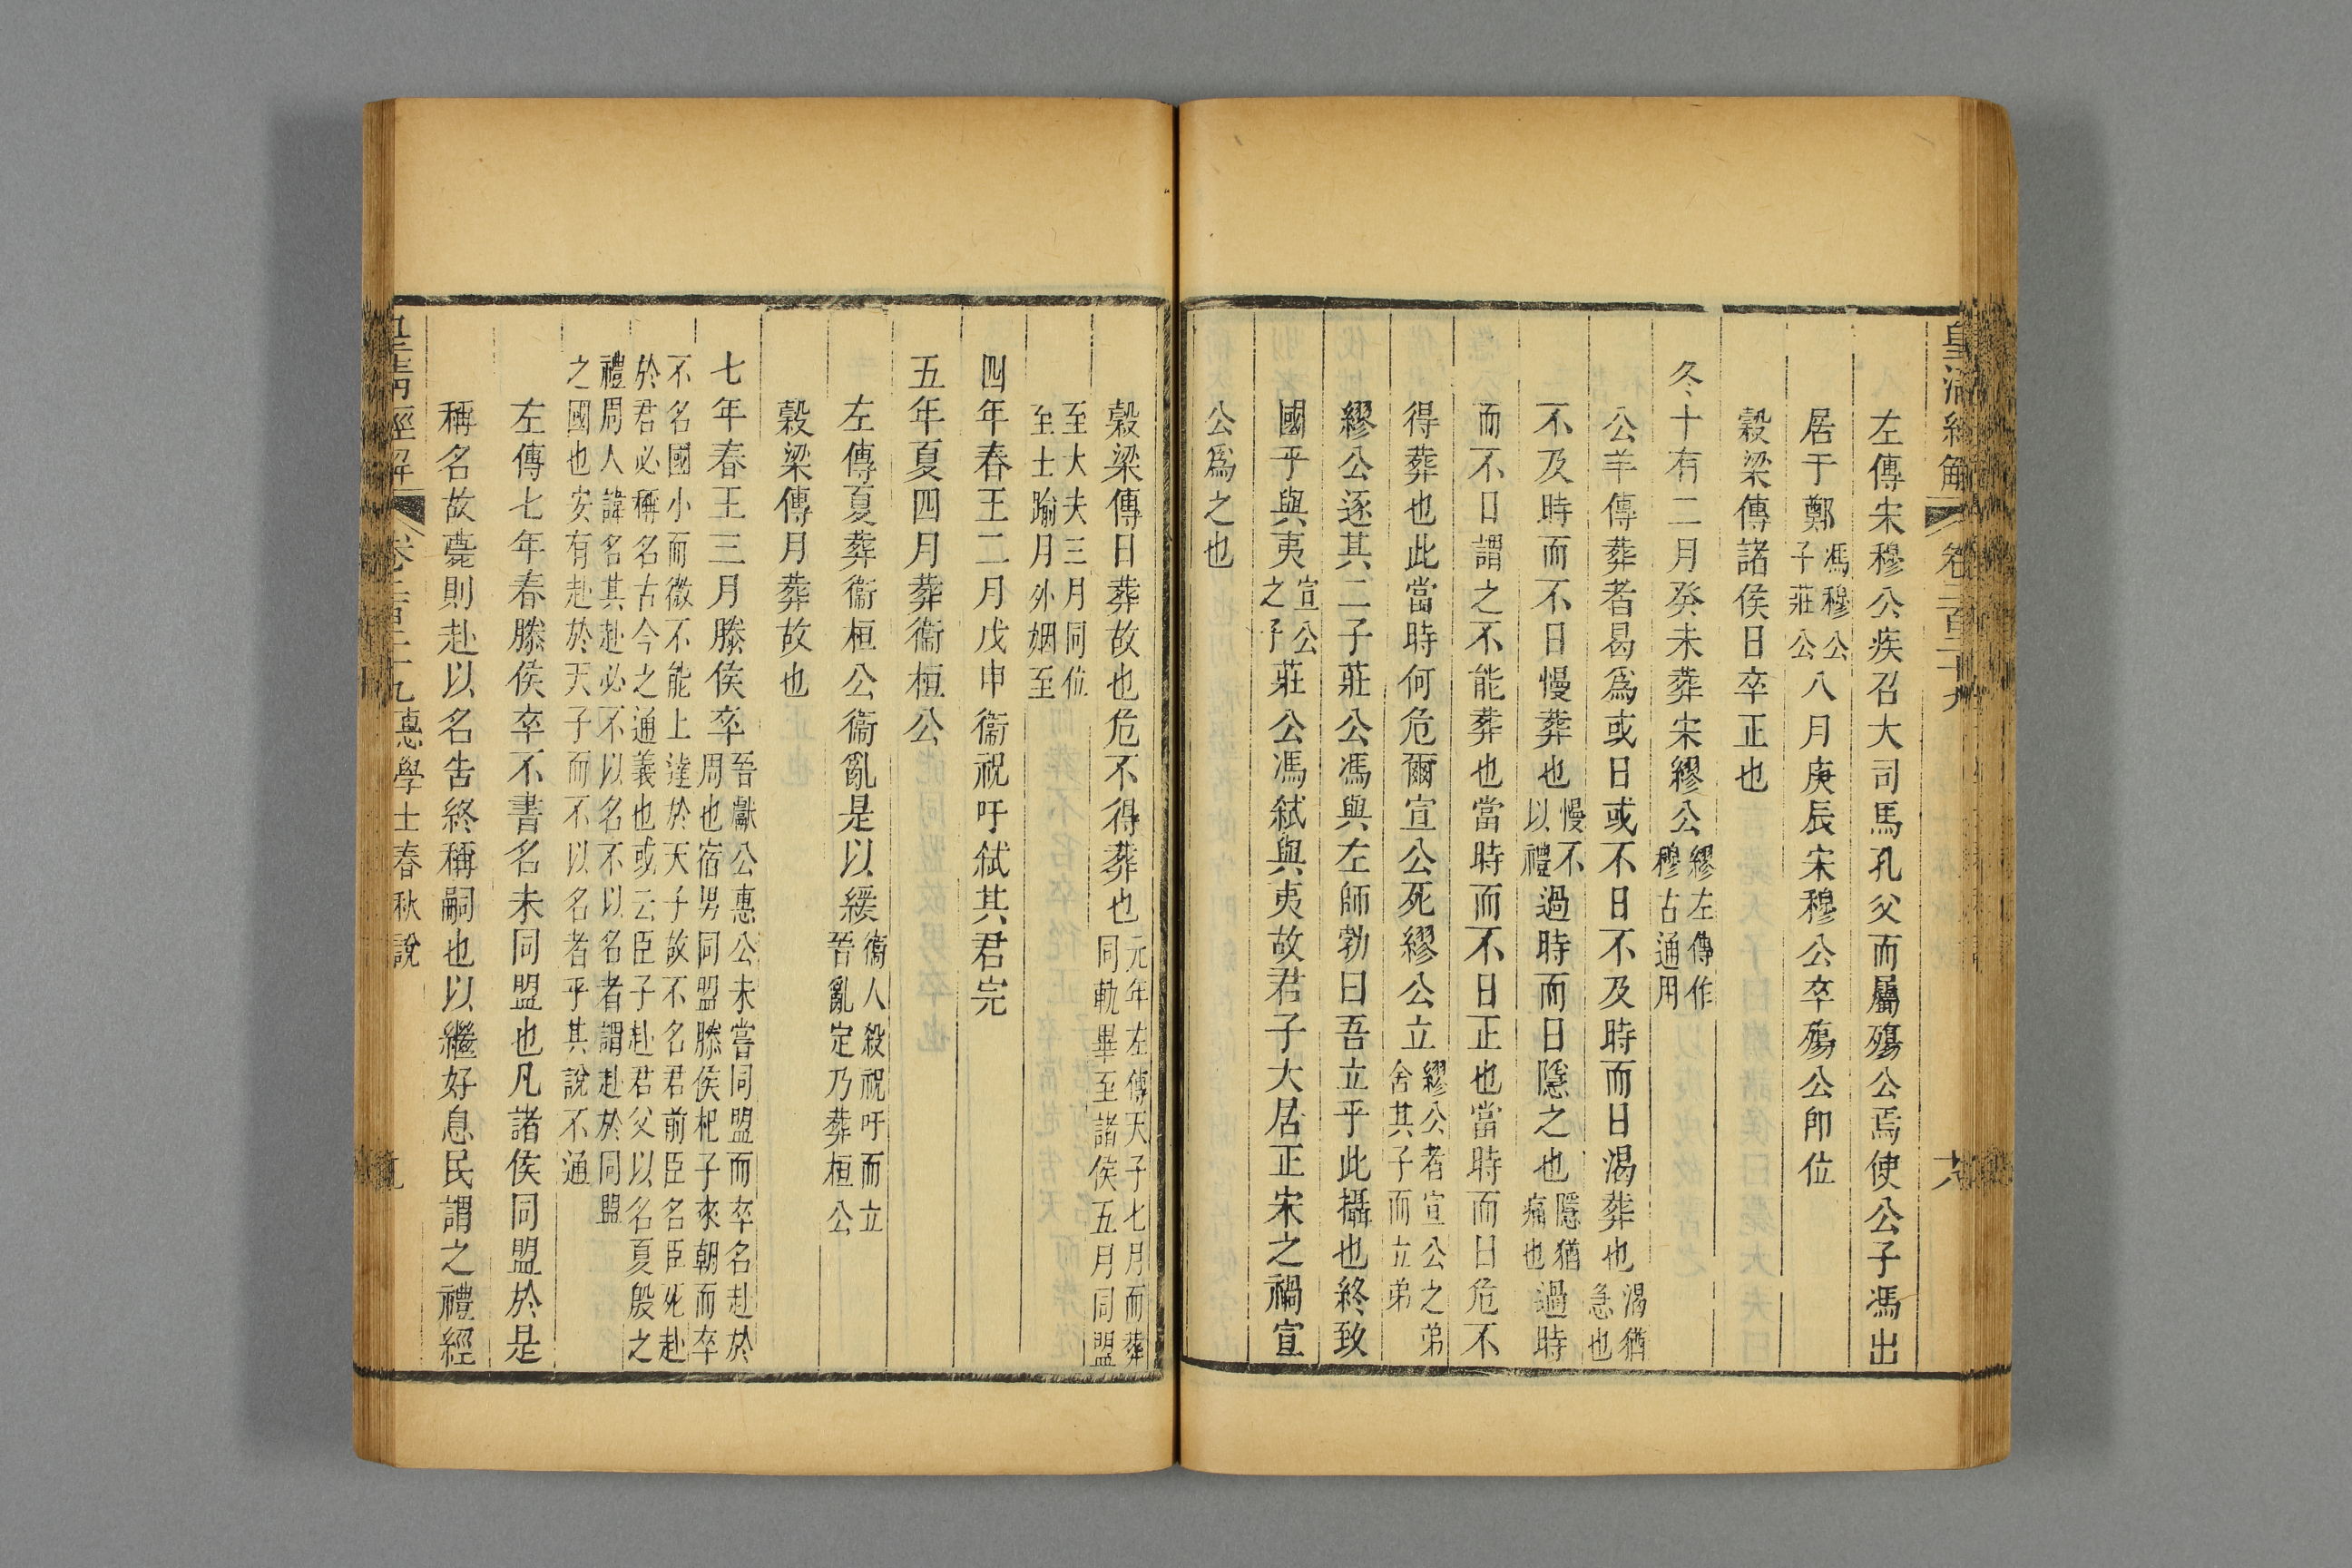 皇清經解 卷二百二十九 六
左傳宋穆公疾召大司馬孔父而屬殤公焉使公子馮出
居于鄭馮穆公子莊公八月庚辰宋穆公卒殤公卽位
穀梁傳諸侯日卒正也
冬十有二月癸未葬宋繆公繆左傳作穆古通用
公羊傳葬者曷爲或日或不日不及時而日渴葬也渴猶急也
不及時而不日慢葬也慢不以禮過時而日隱之也隱猶痛也過時
而不日謂之不能葬也當時而不日正也當時而日危不
得葬也此當時何危爾宣公死繆公立繆公者宣公之弟舍其子而立弟
繆公逐其二子莊公馮與左師勃曰吾立乎此攝也終致
國乎與夷宣公之子莊公馮弑與夷故君子大居正宋之禍宣
公爲之也
穀梁傳日葬故也危不得葬也元年左傳天子七月而葬同軌畢至諸侯五月同盟
至大夫三月同位至士踰月外姻至
四年春王二月戊申衞祝吁弑其君完
五年夏四月葬衞桓公
左傳夏葬衞桓公衞亂是以緩衞人殺祝吁而立晉亂定乃葬桓公
穀梁傳月葬故也
七年春王三月滕侯卒晉獻公惠公未嘗同盟而卒名赴於周也宿男同盟滕侯杞子來朝而卒
不名國小而微不能上達於天子故不名君前臣名臣死赴於君必稱名古今之通義也或云臣子赴君父以名夏殷之
禮周人諱名其赴必不以名不以名者謂赴於同盟之國也安有赴於天子而不以名者乎其說不通
左傳七年春滕侯卒不書名未同盟也凡諸侯同盟於是
稱名故薨則赴以名告終稱嗣也以繼好息民謂之禮經
皇清經解 卷二百二十九惠學士春秋說